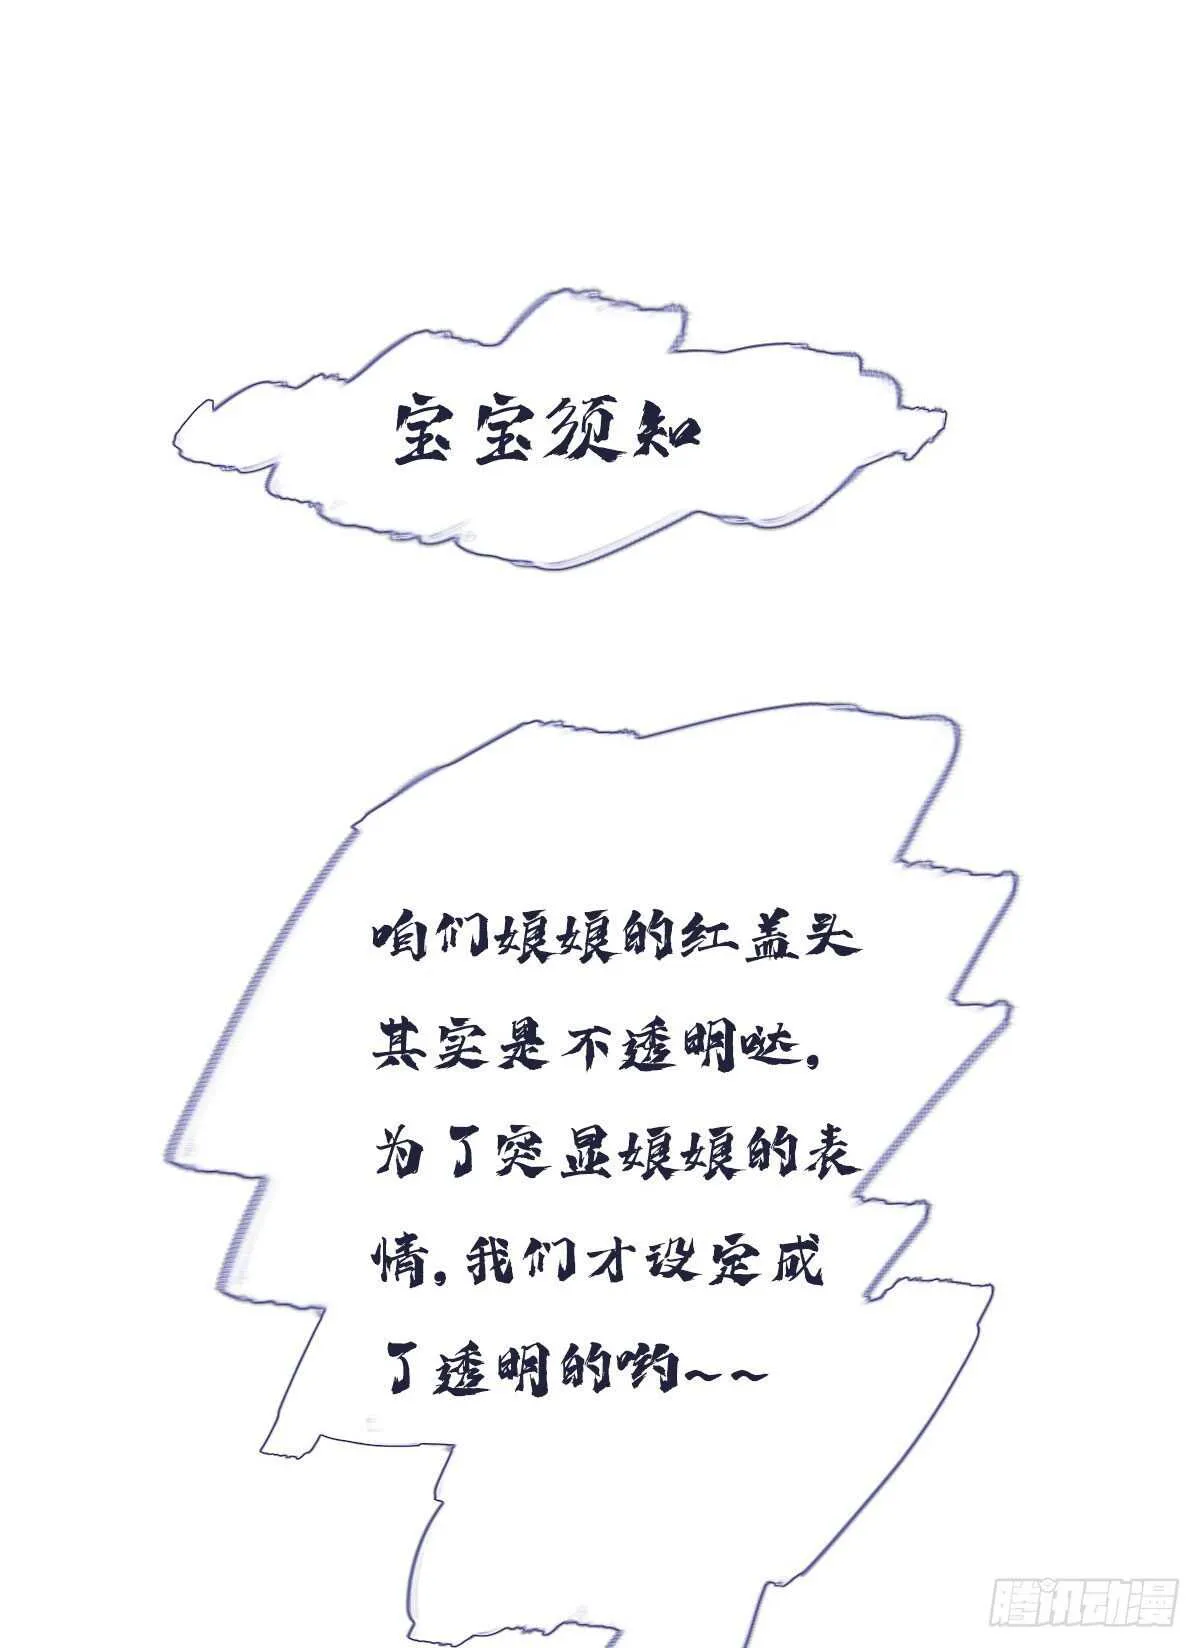 宝宝须知
咱们娘娘的红盖头
其实是不透明哒，
为了突显娘娘的表
情，我们才设定成
了透明的哟~~
腾讯动漫